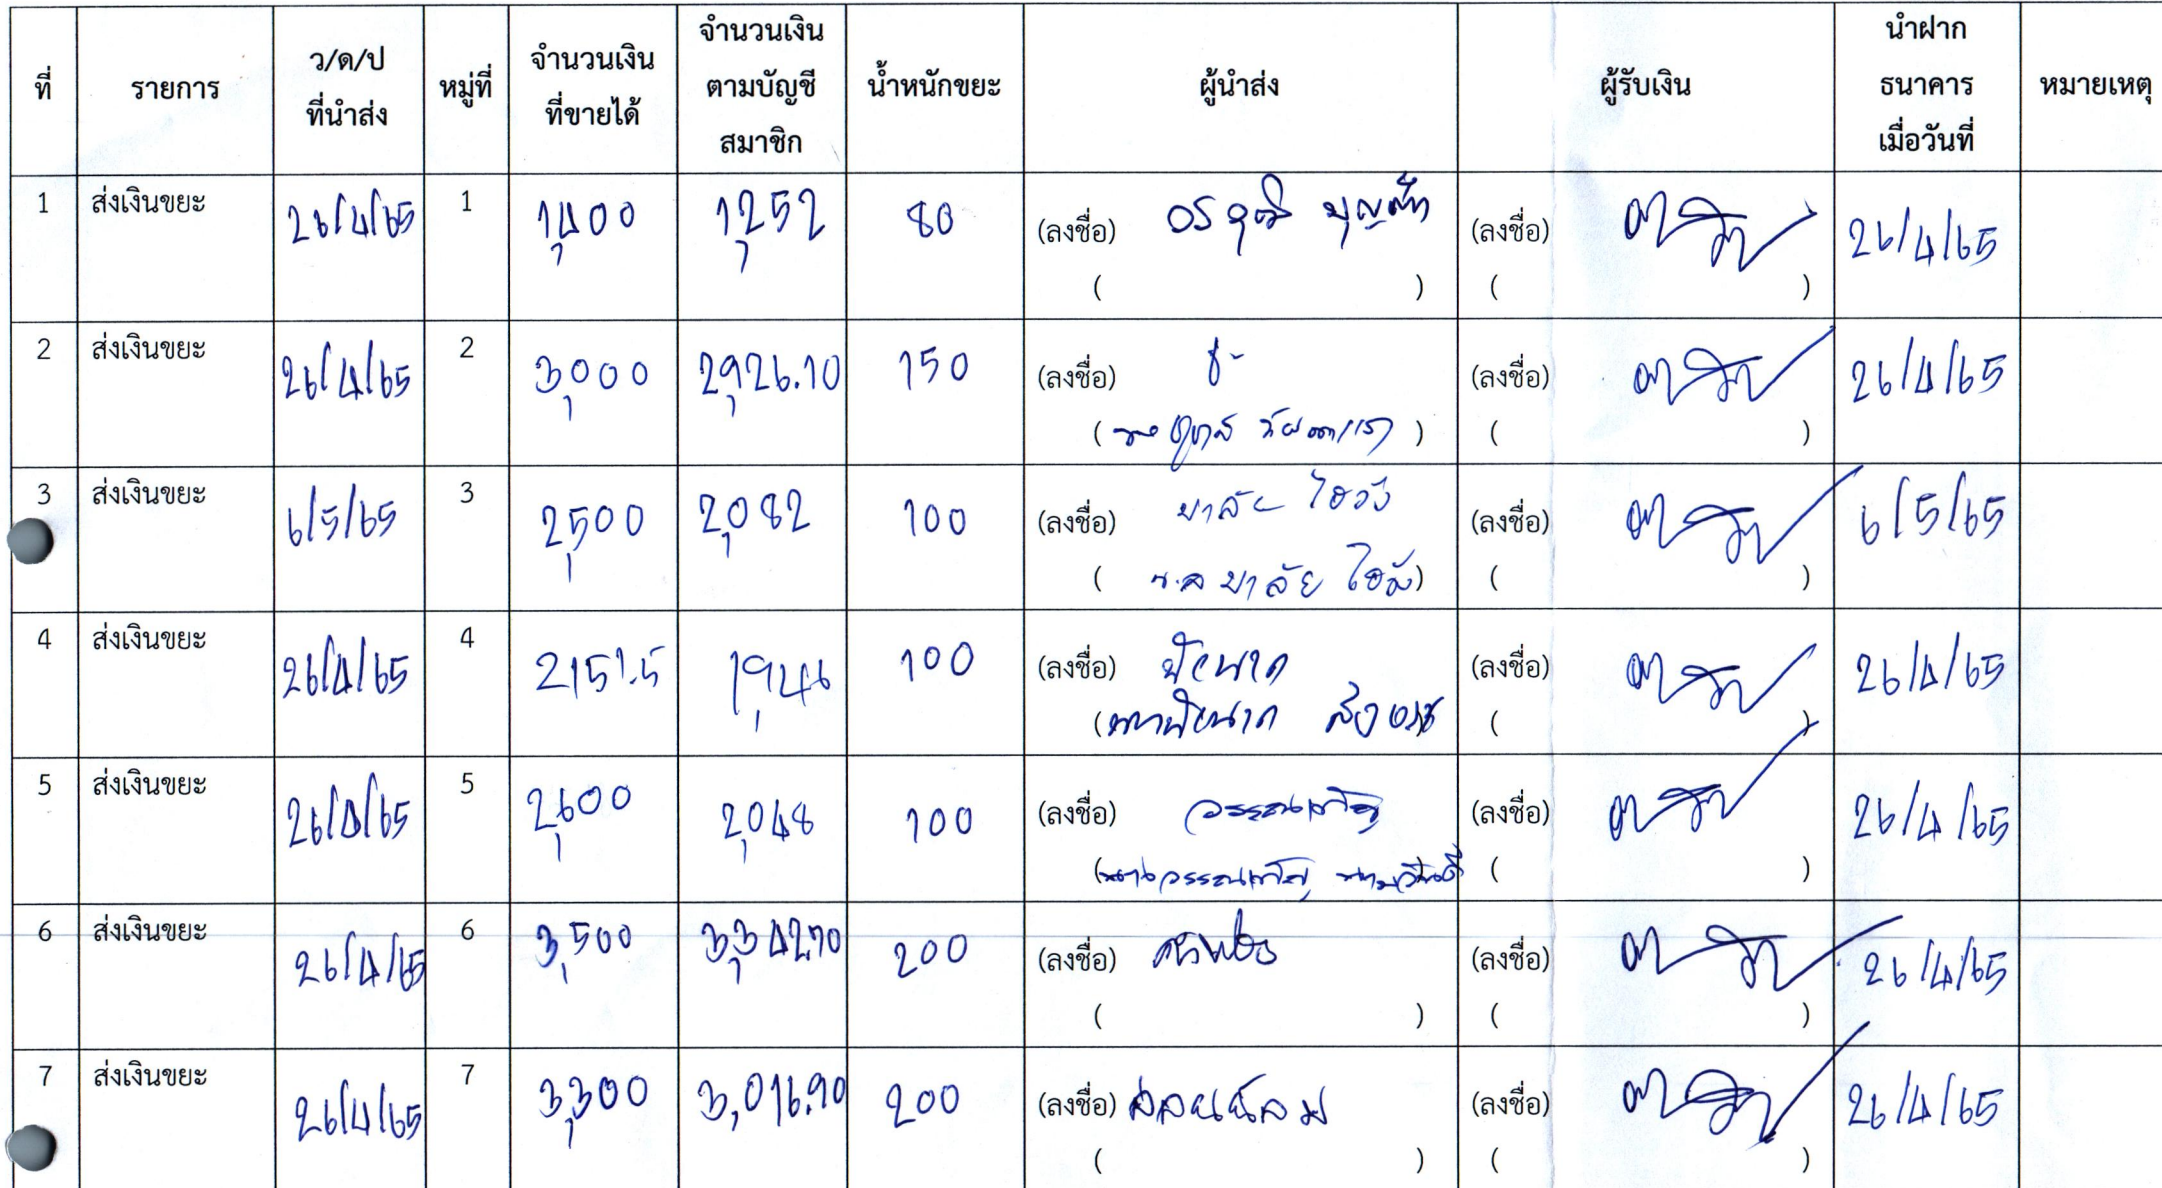 ที่ รายการ ว/ด/ป ที่นำส่ง หมู่ที่ จำนวนเงิน ที่ขายได้ จำนวนเงิน ตามบัญชี สมาชิก น้ำหนักขยะ ผู้นำส่ง ผู้รับเงิน นำฝาก ธนาคาร เมื่อวันที่ หมายเหตุ
1 ส่งเงินขยะ 26/4/65 1 1,400 1,252 80 (ลงชื่อ) (ลงชื่อ) 26/4/65
( ) ( )
2 ส่งเงินขยะ 26/4/65 2 3,000 2,926.10 150 (ลงชื่อ) (ลงชื่อ) 26/4/65
( ) ( )
3 ส่งเงินขยะ 6/5/65 3 2,500 2,082 100 (ลงชื่อ) มาลัย (ลงชื่อ) 6/5/65
( มาลัย ) ( )
4 ส่งเงินขยะ 26/4/65 4 2151.5 1,946 100 (ลงชื่อ) (ลงชื่อ) 26/4/65
( ) ( )
5 ส่งเงินขยะ 26/4/65 5 2,600 2,048 100 (ลงชื่อ) (ลงชื่อ) 26/4/65
( ) ( )
6 ส่งเงินขยะ 26/4/65 6 3,500 3,342.70 200 (ลงชื่อ) (ลงชื่อ) 26/4/65
( ) ( )
7 ส่งเงินขยะ 26/4/65 7 3,300 3,016.90 200 (ลงชื่อ) (ลงชื่อ) 26/4/65
( ) ( )